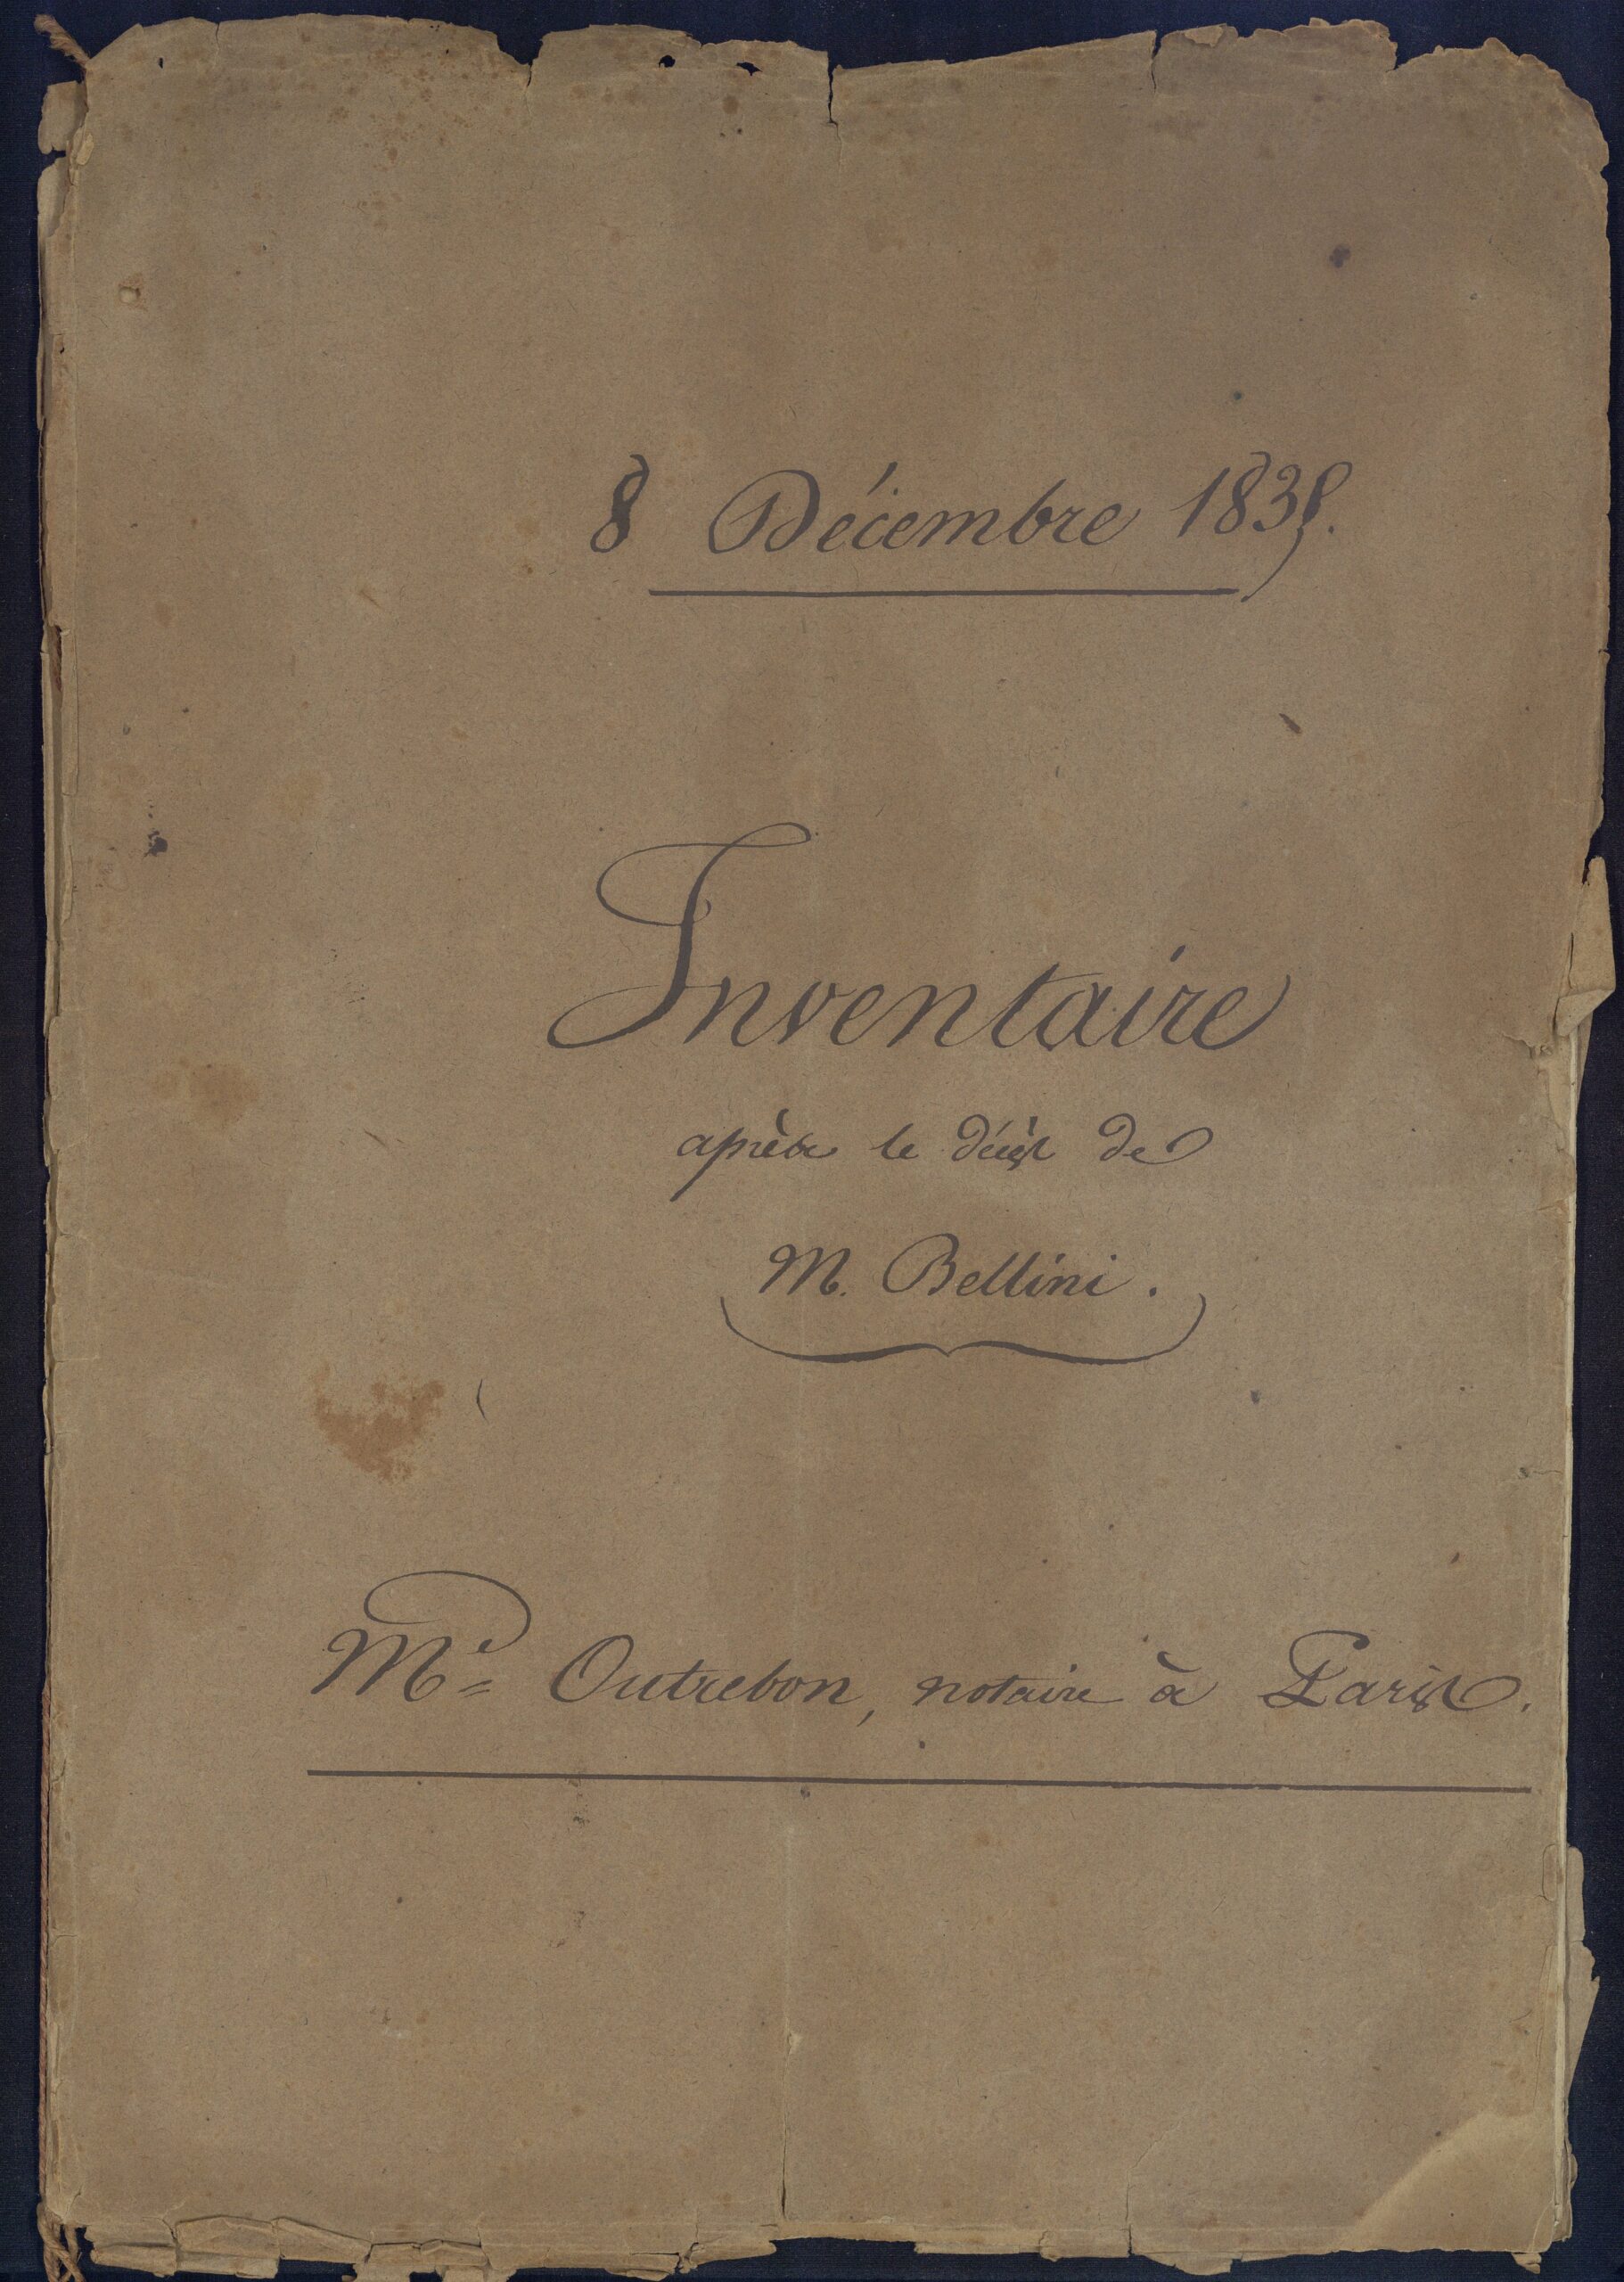 8 Décembre 1835.
Inventaire
après le décès de
M. Bellini.
Me Outrebon, notaire à Paris.